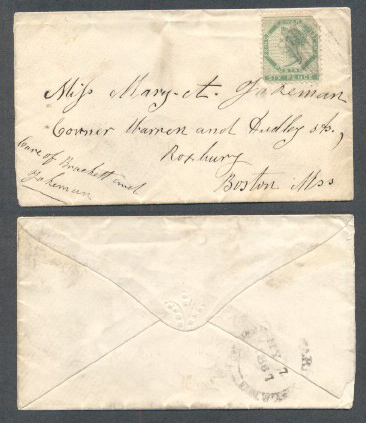 SIX PENCE
Miss Mary. et. Jakeman
Corner Warren and Dudley sts,
Roxbury
Boston Mss
Care of Brackett and
Jakeman
7
1867